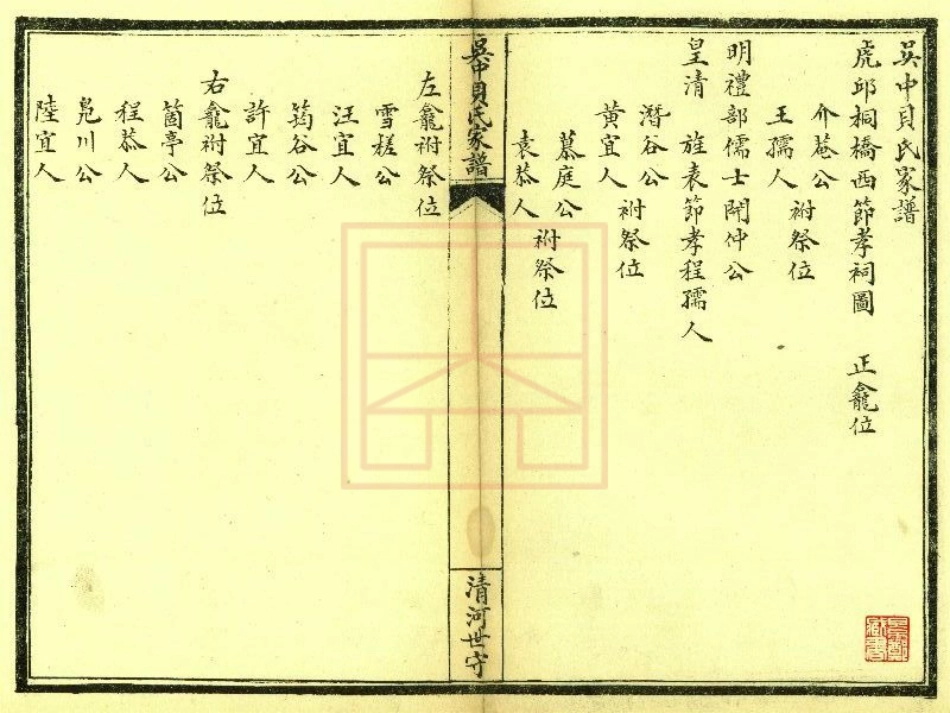 吳中貝氏家譜
虎邱桐橋西節孝祠圖　正龕位
介菴公
王孺人
祔祭位
明禮部儒士閒仲公
皇清　旌表節孝程孺人
潛谷公
黃宜人
祔祭位
慕庭公
袁恭人
祔祭位
吳中貝氏家譜
清河世守
左龕祔祭位
雪槎公
汪宜人
筠谷公
許宜人
右龕祔祭位
箇亭公
程恭人
鳧川公
陸宜人